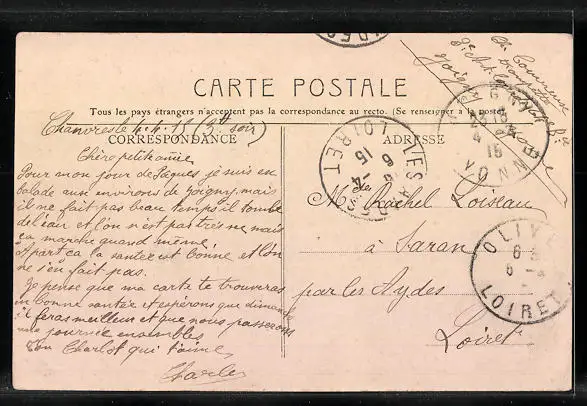 CARTE POSTALE
Tous les pays étrangers n'acceptent pas la correspondance au recto. (Se renseigner à la poste)
CORRESPONDANCE
ADRESSE
4.4.15 soir
Chère petite amie
Pour mon jour de Pâques je suis en
balade aux environs de Joigny, mais
il ne fait pas beau temps il tombe
de l'eau et l'on n'est pas très
ça marche quand même
Apart ça la santé est bonne et l'on
ne s'en fait pas.
Je pense que ma carte te trouveras
en bonne santé et espérons que dimanche
il feras meilleur et que nous passerons
une journée ensembles
Ton Charlot qui t'aime,
Charles
Mlle Rachel Loiseau
à Saran
par les Aydes
Loiret
Ch.
Joigny
YONNE
15
LES AYDES
6 -4
15
LOIRET
OLIVET
6
LOIRET